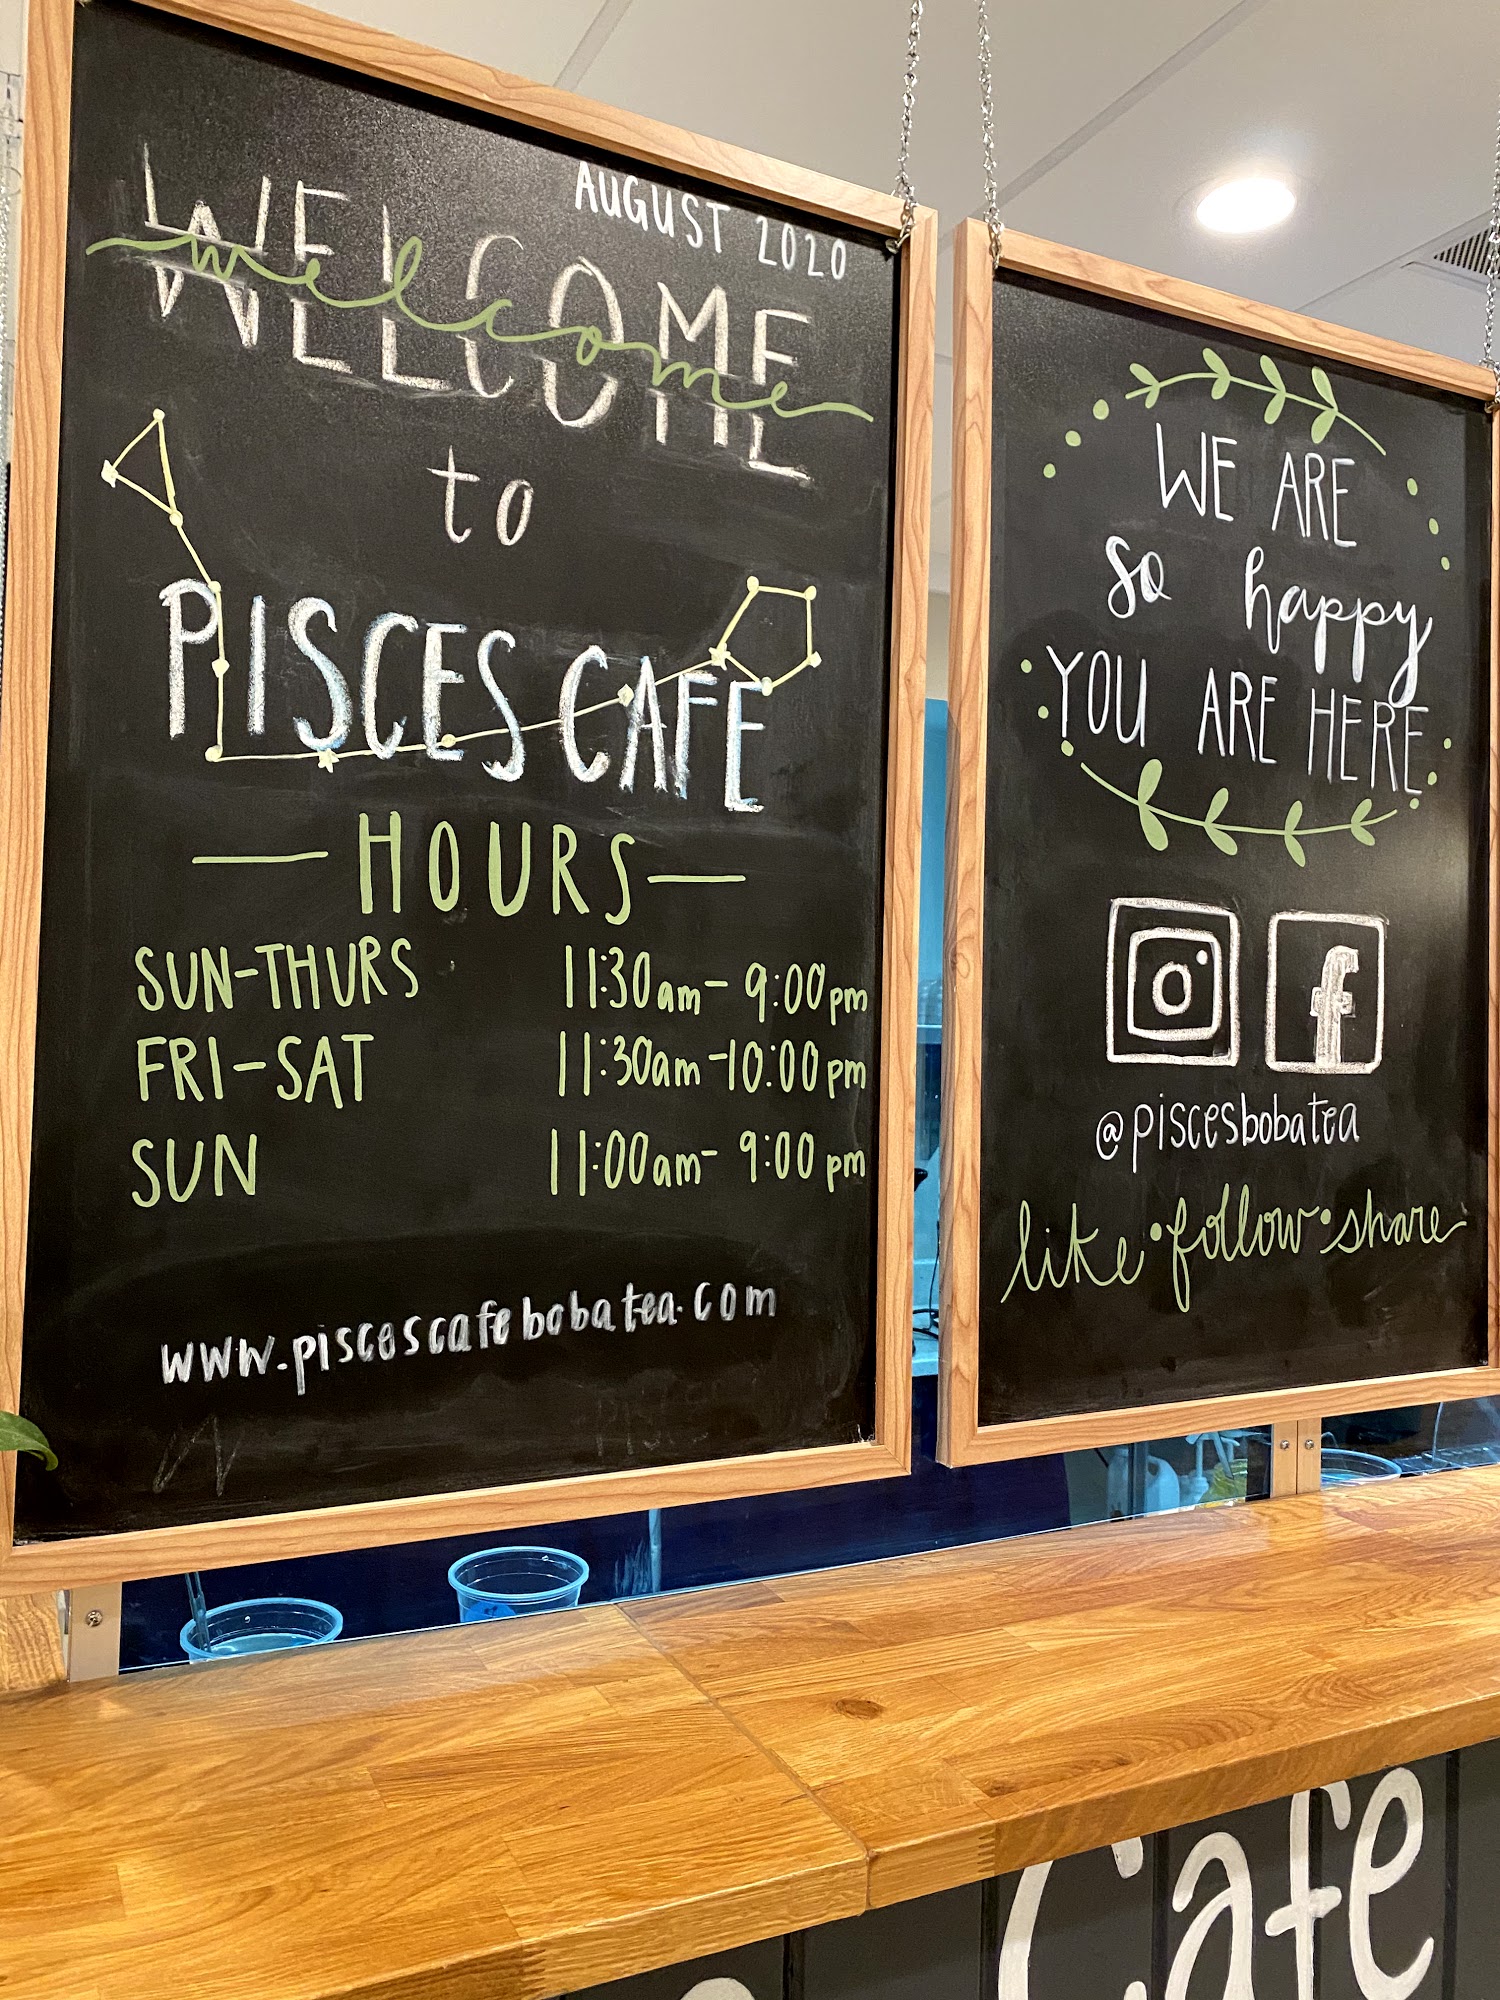 AUGUST 2020
WELCOME
welcome
to
PISCES CAFE
HOURS
SUN-THURS 11:30am - 9:00pm
FRI-SAT 11:30am - 10:00pm
SUN 11:00am - 9:00pm
www.piscescafebobatea.com
WE ARE
so happy
YOU ARE HERE
f
@piscesbobatea
like • follow • share
Cafe